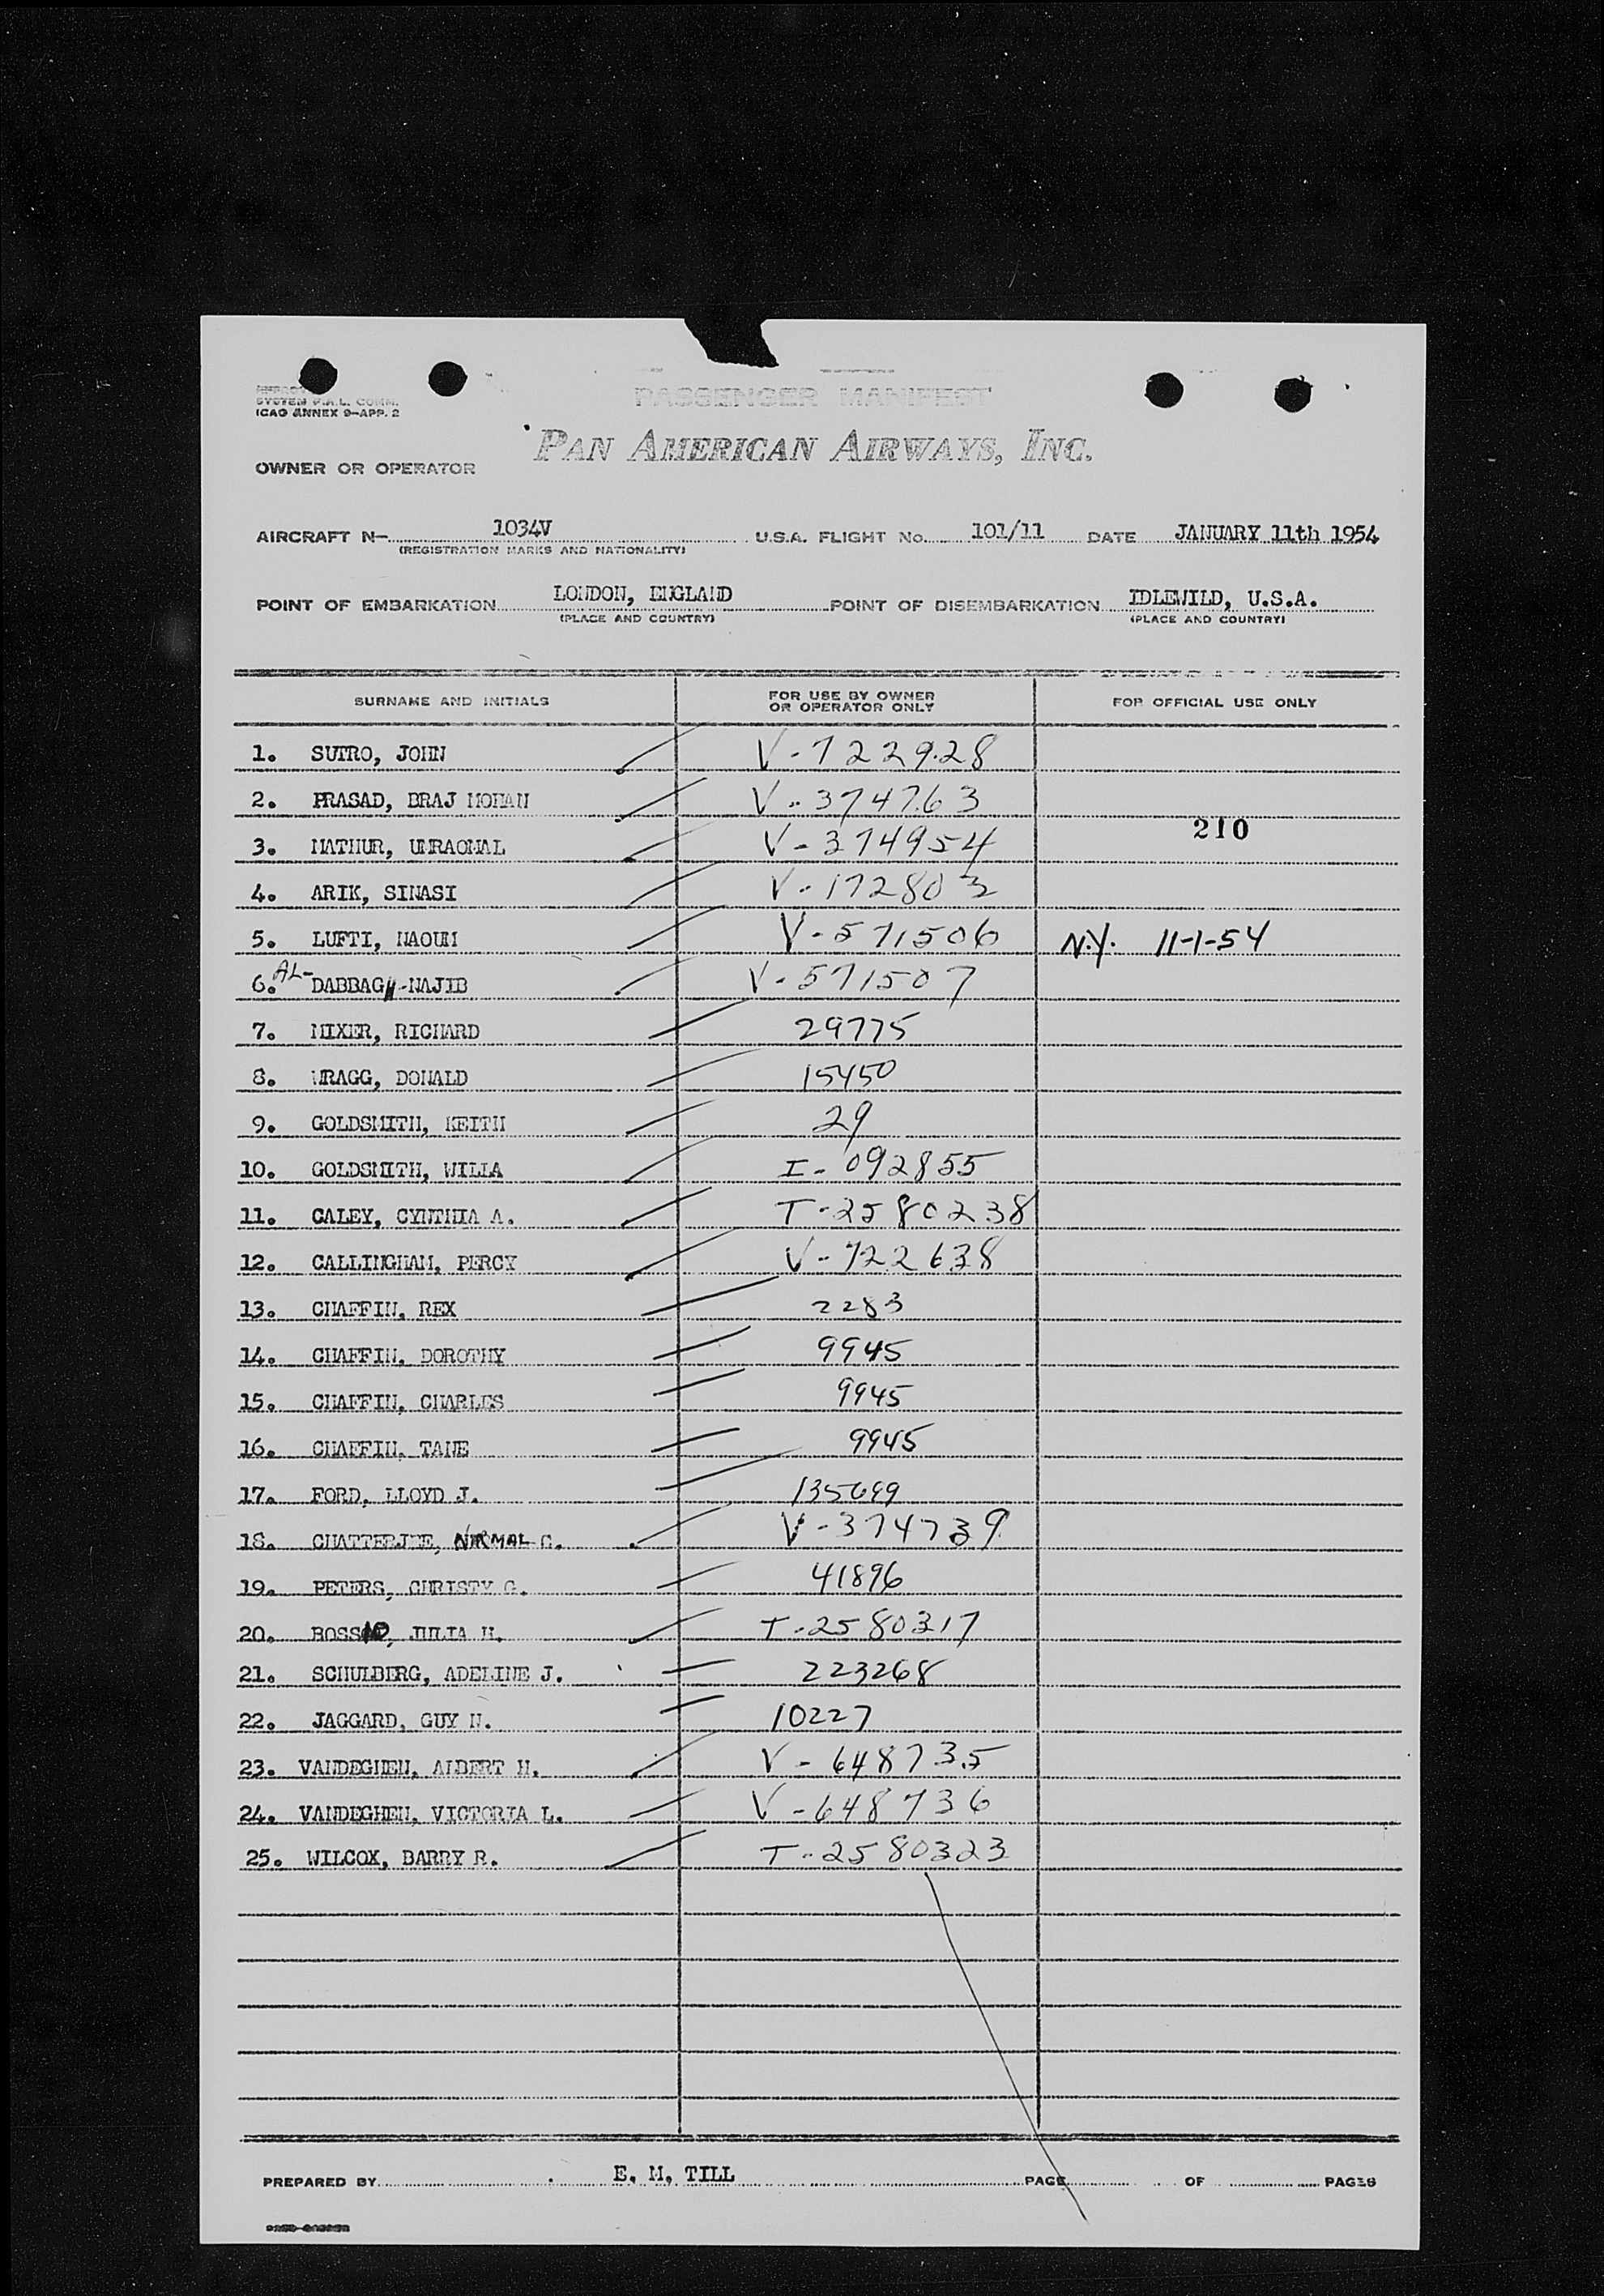 PASSENGER MANIFEST
SYSTEM F.A.L. COMM.
ICAO ANNEX 9-APP. 2
PAN AMERICAN AIRWAYS, INC.
OWNER OR OPERATOR
AIRCRAFT N- 1034V U.S.A. FLIGHT No. 101/11 DATE JANUARY 11th 1954
(REGISTRATION MARKS AND NATIONALITY)
POINT OF EMBARKATION LONDON, ENGLAND POINT OF DISEMBARKATION IDLEWILD, U.S.A.
(PLACE AND COUNTRY) (PLACE AND COUNTRY)
SURNAME AND INITIALS FOR USE BY OWNER OR OPERATOR ONLY FOR OFFICIAL USE ONLY
1. SUTRO, JOHN V-722928
2. PRASAD, BRAJ MOHAN V-374763
210
3. MATHUR, UMRAOMAL V-374954
4. ARIK, SINASI V-172803
5. LUFTI, NAOUM V-571506 N.Y. 11-1-54
6. AL-DABBAGH-NAJIB V-571507
7. MIXER, RICHARD 29775
8. WRAGG, DONALD 15450
9. GOLDSMITH, KEITH 29
10. GOLDSMITH, WILLA I-092855
11. CALEY, CYNTHIA A. T-2580238
12. CALLINGHAM, PERCY V-722638
13. CHAFFIN, REX 2283
14. CHAFFIN, DOROTHY 9945
15. CHAFFIN, CHARLES 9945
16. CHAFFIN, TANE 9945
17. FORD, LLOYD J. 135699
18. CHATTERJEE, NIRMAL C. V-374739
19. PETERS, CHRISTY G. 41896
20. BOSSIO, JULIA H. T-2580317
21. SCHULBERG, ADELINE J. 223268
22. JAGGARD, GUY N. 10227
23. VANDEGHEN, ALBERT H. V-648735
24. VANDEGHEN, VICTORIA L. V-648736
25. WILCOX, BARRY R. T-2580323
PREPARED BY E. M. TILL PAGE OF PAGES